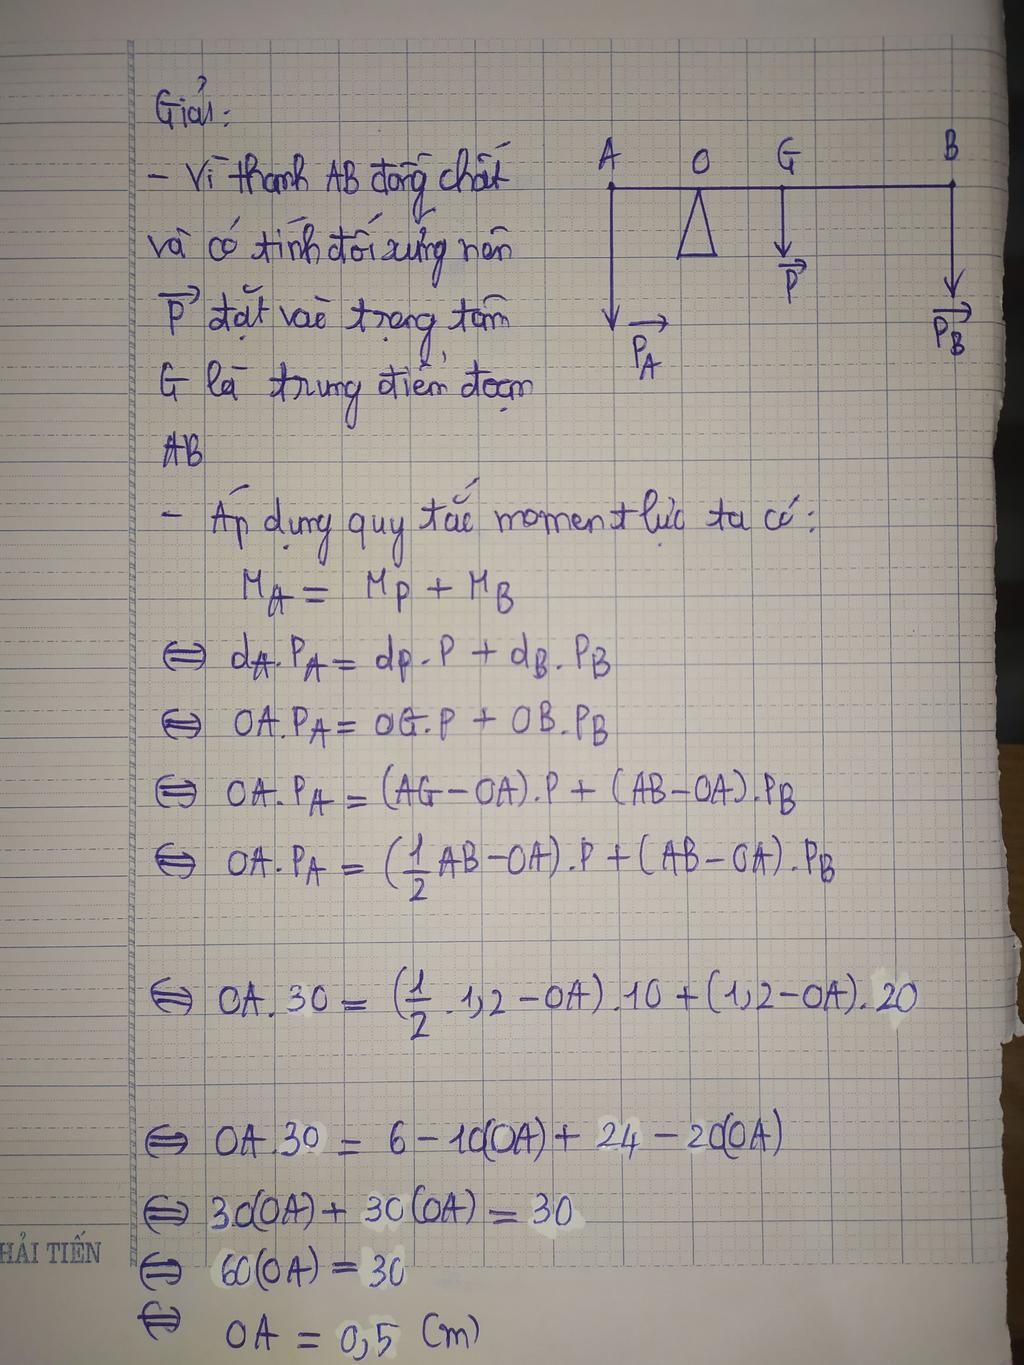 Giải:
- Vì thanh AB đồng chất
và có tính đối xứng nên
P đặt vào trọng tâm
G là trung điểm đoạn
AB
A O G B
P
P_A
P_B
- Áp dụng quy tắc moment lực ta có:
M_A = M_P + M_B
⇔ d_A.P_A = d_P.P + d_B.P_B
⇔ OA.P_A = OG.P + OB.P_B
⇔ OA.P_A = (AG-OA).P + (AB-OA).P_B
⇔ OA.P_A = (1/2 AB-OA).P + (AB-OA).P_B
⇔ OA.30 = (1/2.1,2-OA).10 + (1,2-OA).20
⇔ OA.30 = 6 - 10(OA) + 24 - 20(OA)
⇔ 30(OA) + 30(OA) = 30
⇔ 60(OA) = 30
⇔ OA = 0,5 (m)
HẢI TIẾN